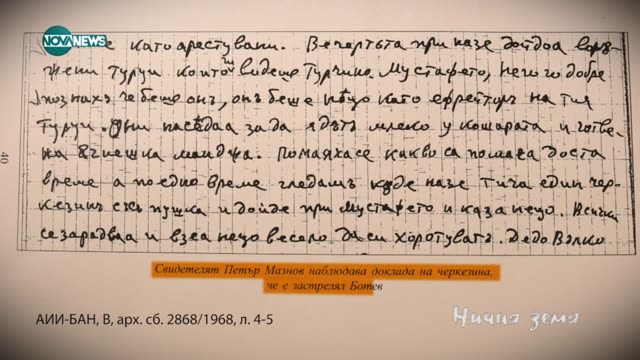 NOVANEWS
като арестувани. Вечертьта при назе дойдоа воръ
жени турци които видеше Турчино. Мустафето, него го добре
познахъ че беше онъ, онъ беше нещо като ефрейторъ на тия
турци. Они паседаа за да ядътъ млеко у кошарата и готве
на ягнешка манджа. Помаяхасе какво са помаяа доста
време а поедно време гледамъ къде назе тича един чер-
кезинъ съ пушка и дойде при Мустафето и каза нещо. Всички
се зарадваа и взеа нещо весело да си хоротуватъ. Дедо Вълко
40
Свидетелят Петър Мазнов наблюдава доклада на черкезина,
че е застрелял Ботев
АИИ-БАН, В, арх. сб. 2868/1968, л. 4-5
Ничия земя